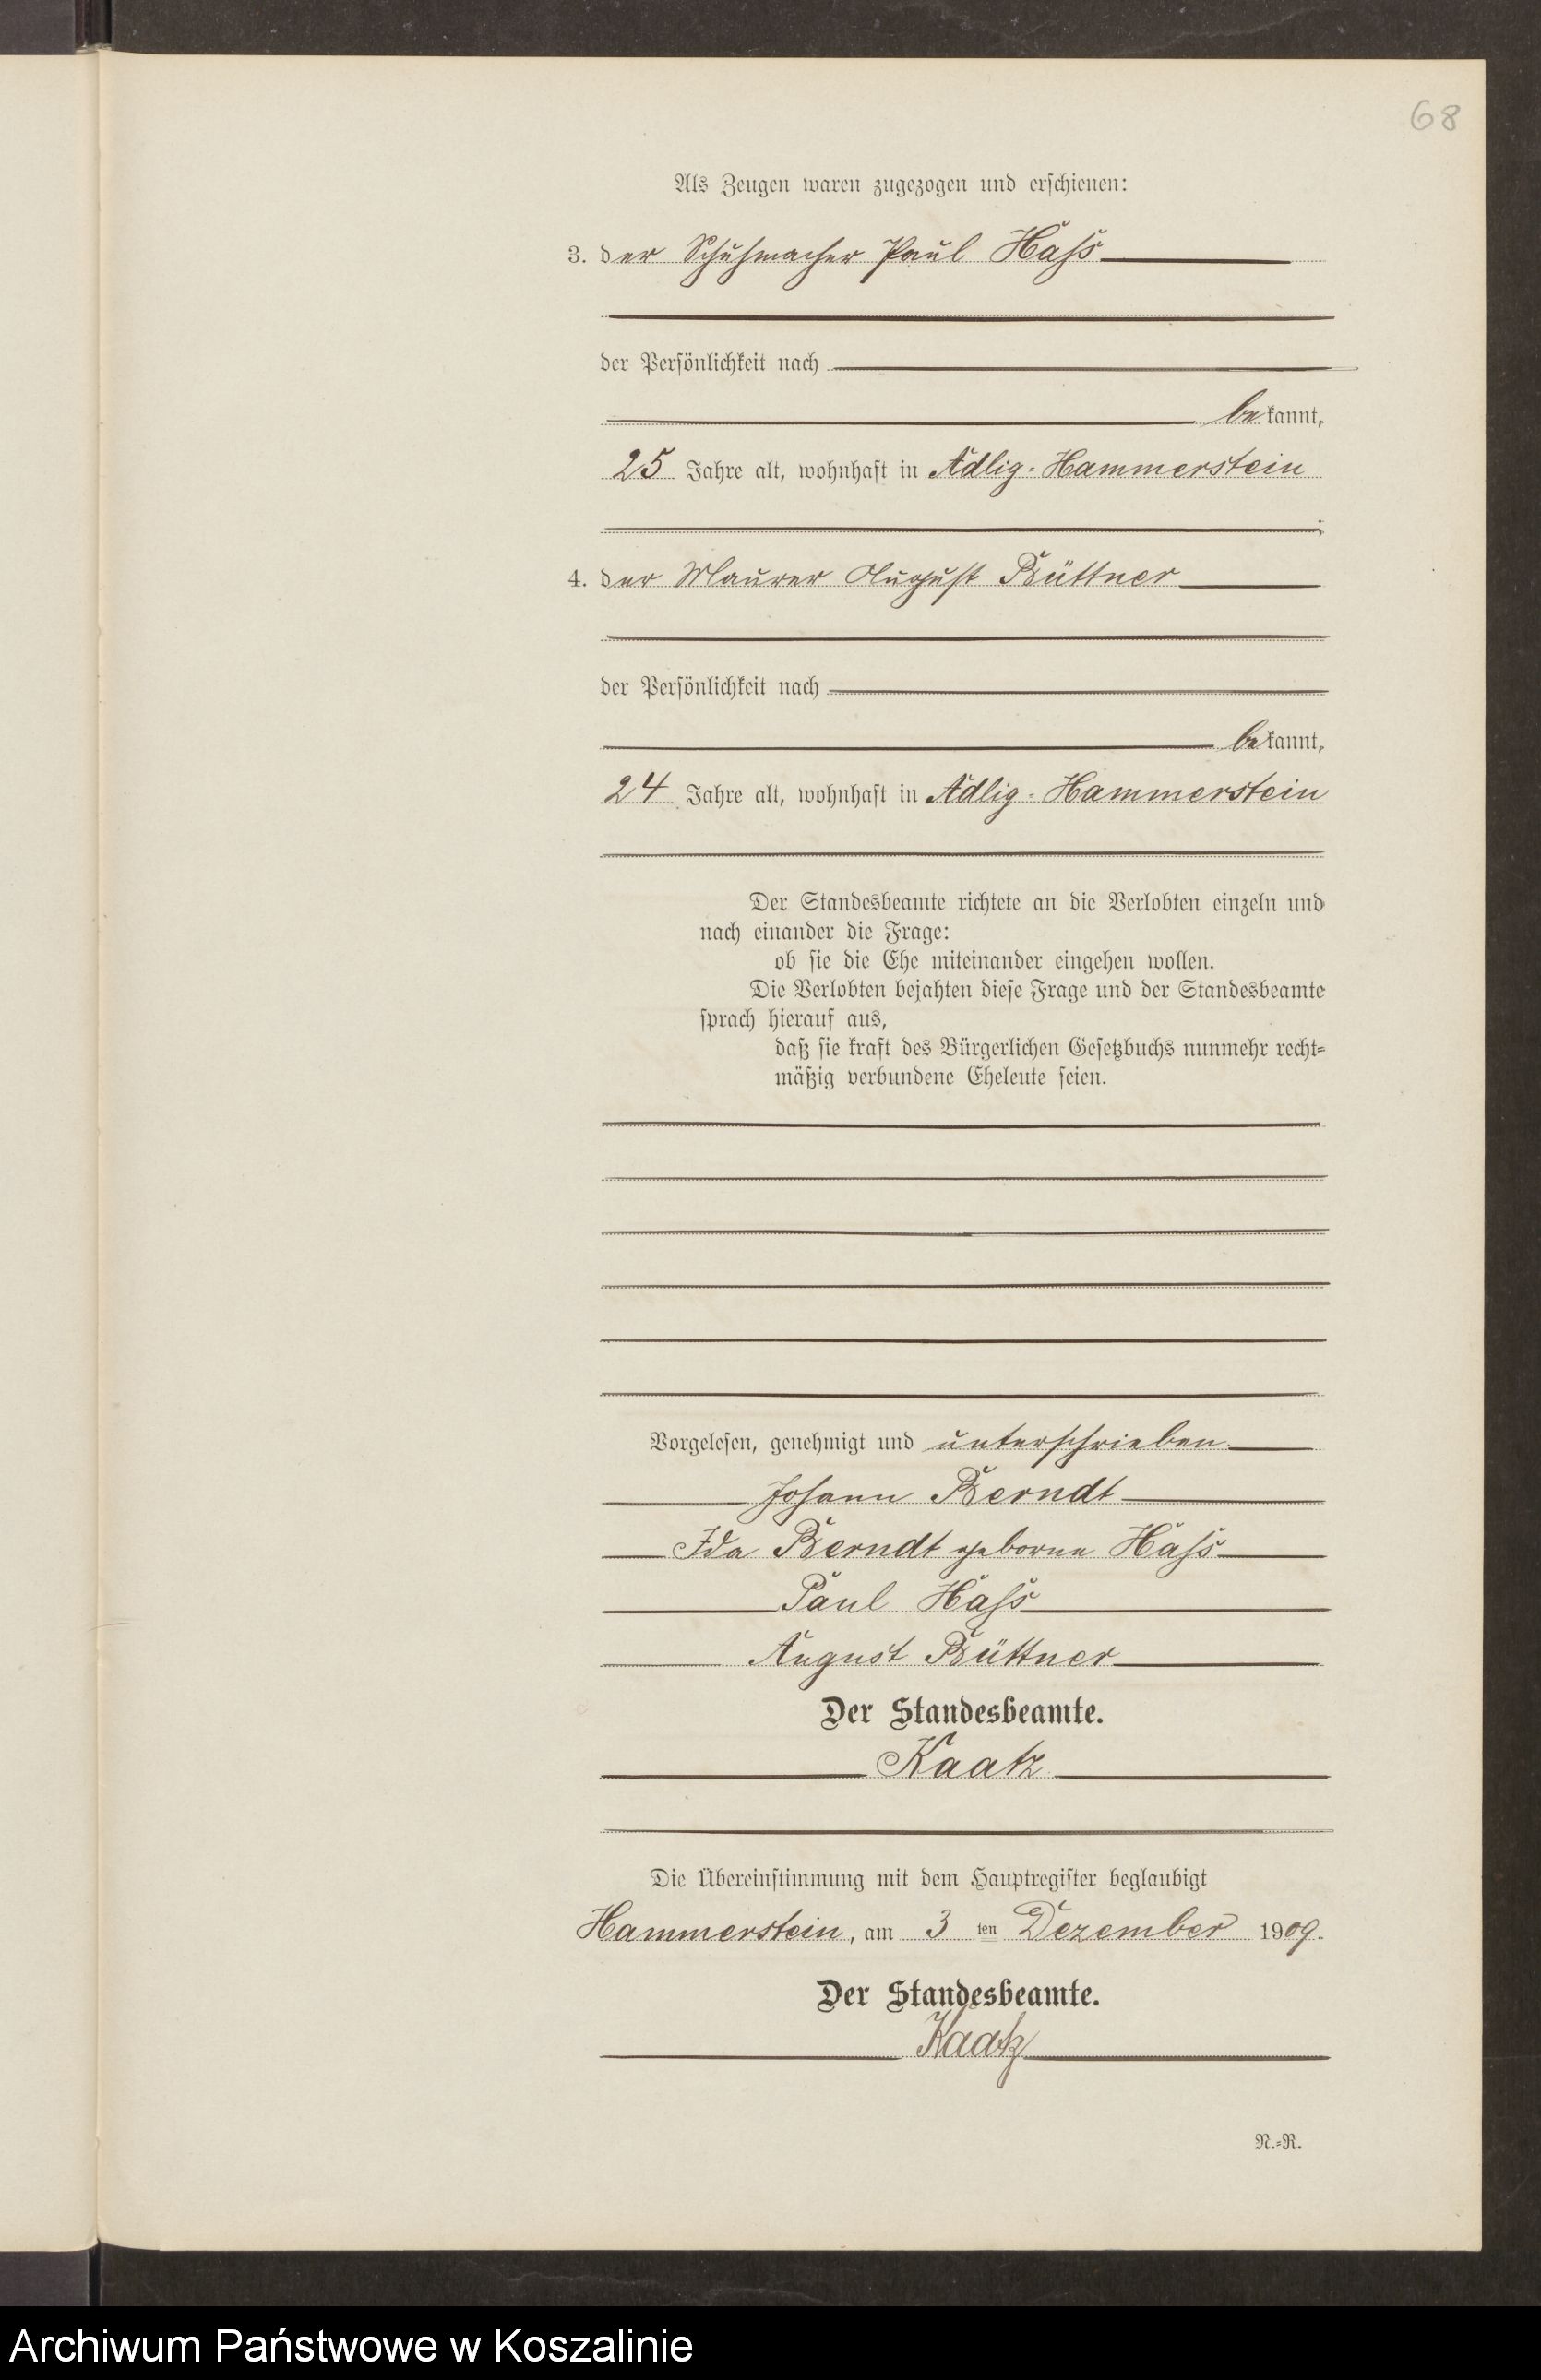 68
Als Zeugen waren zugezogen und erschienen:
3. der Schuhmacher Paul Hass
der Persönlichkeit nach
bekannt,
25 Jahre alt, wohnhaft in Adlig-Hammerstein
;
4. der Maurer August Büttner
der Persönlichkeit nach
bekannt,
24 Jahre alt, wohnhaft in Adlig-Hammerstein
Der Standesbeamte richtete an die Verlobten einzeln und
nach einander die Frage:
ob sie die Ehe miteinander eingehen wollen.
Die Verlobten bejahten diese Frage und der Standesbeamte
sprach hierauf aus,
daß sie kraft des Bürgerlichen Gesetzbuchs nunmehr recht-
mäßig verbundene Eheleute seien.
Vorgelesen, genehmigt und unterschrieben.
Johann Berndt
Ida Berndt geborne Hass
Paul Hass
August Büttner
Der Standesbeamte.
Kaatz
Die Übereinstimmung mit dem Hauptregister beglaubigt
Hammerstein, am 3 ten Dezember 1909.
Der Standesbeamte.
Kaatz
N.-R.
Archiwum Państwowe w Koszalinie